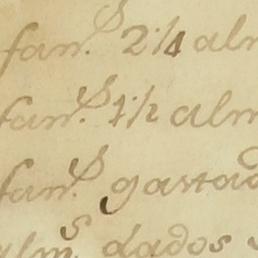 fan.s 2 1/4 alm
fan.s 1 1/2 alm
fan.s gastad
alm.s dados